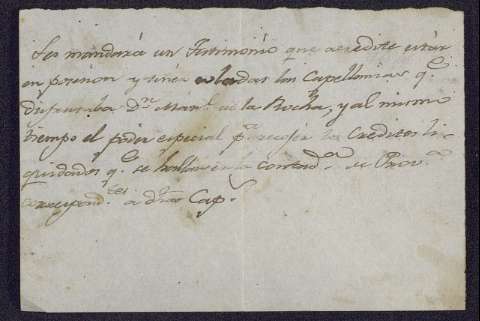 Se mandará un Testimonio que acredite estár
en posesion y quieta de las Capellanias q.e
disfrutaba D.n Man.l de la Rocha, y al mismo
tiempo el poder especial p.a recojer los Creditos li-
quidados q.e se hallan en la Contad.a de Prov.a
correspond.tes a dhas Cap.s